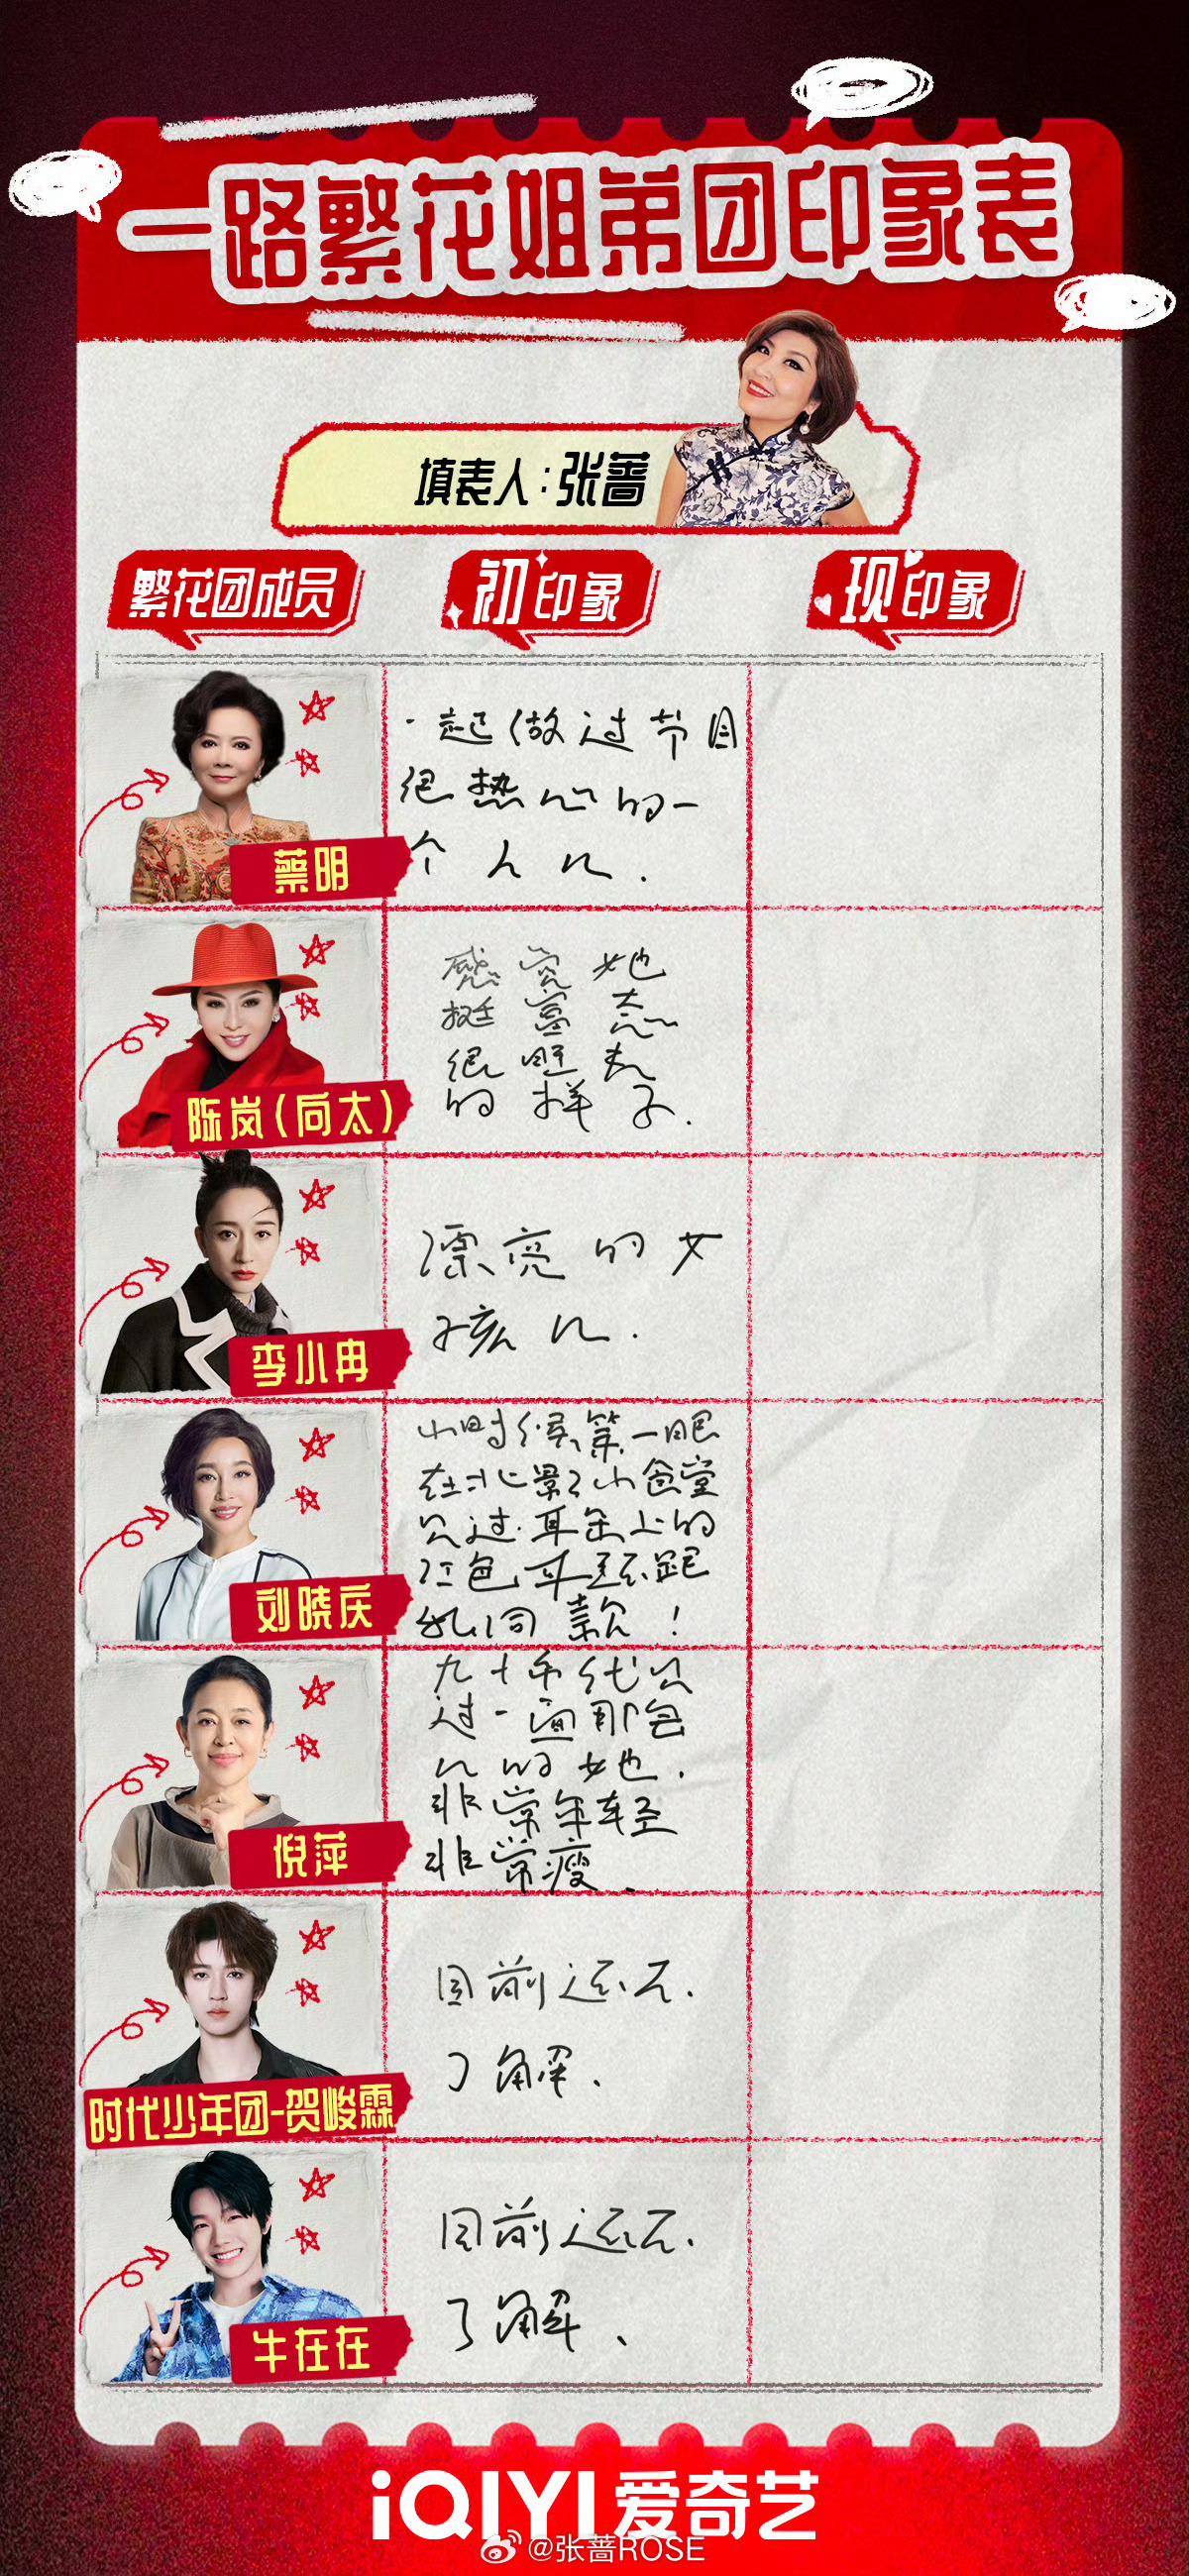 一路繁花姐弟团印象表
填表人:张蔷
繁花团成员
初印象
现印象
蔡明
一起做过节目
很热心的一
个人儿.
陈岚(向太)
感觉她
挺富态
很旺夫
的样子.
李小冉
漂亮的女
孩儿.
刘晓庆
小时候第一眼
在北影小食堂
见过.耳朵上的
红色耳环跟
我同款!
倪萍
九十年代见
过一面那会
儿的她.
非常年轻
非常瘦.
时代少年团-贺峻霖
目前还不.
了解.
牛在在
目前还不.
了解.
iQIYI 爱奇艺
@张蔷ROSE